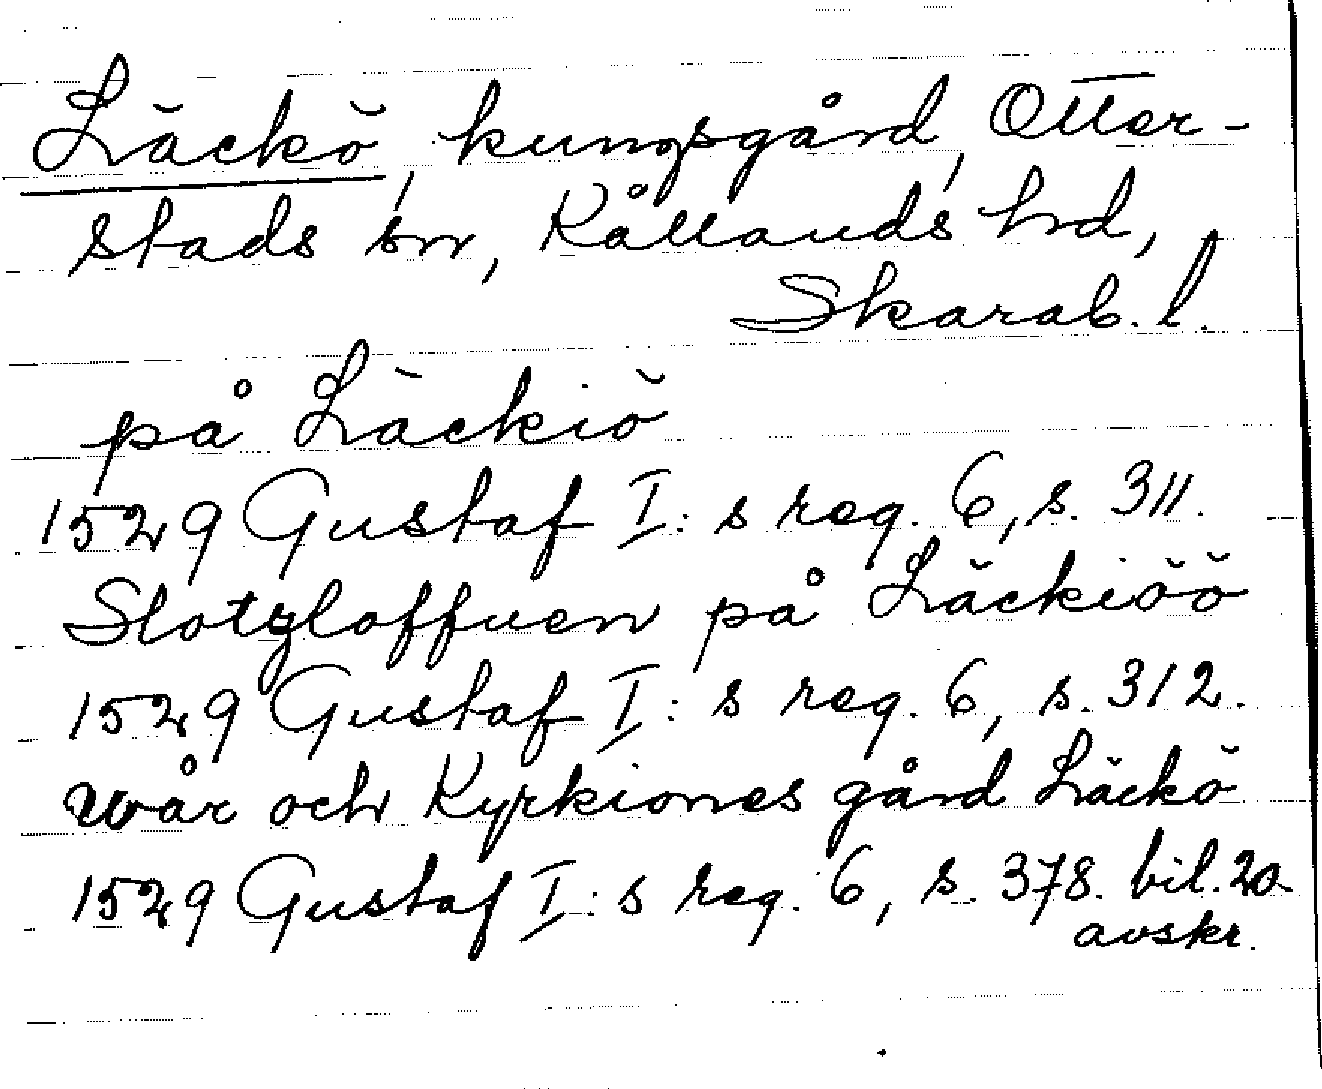 Läckö, kungsgård, Otter-
stads sn, Kållands hd,
Skarab. l.
på Läckiö
1529 Gustaf I:s reg. 6, s. 311.
Slotzloffuen på Läckiöö
1529 Gustaf I:s reg. 6, s. 312.
wår och Kyrkiones gård Läckö
1529 Gustaf I:s reg. 6, s. 378. bil. 20.
avskr.